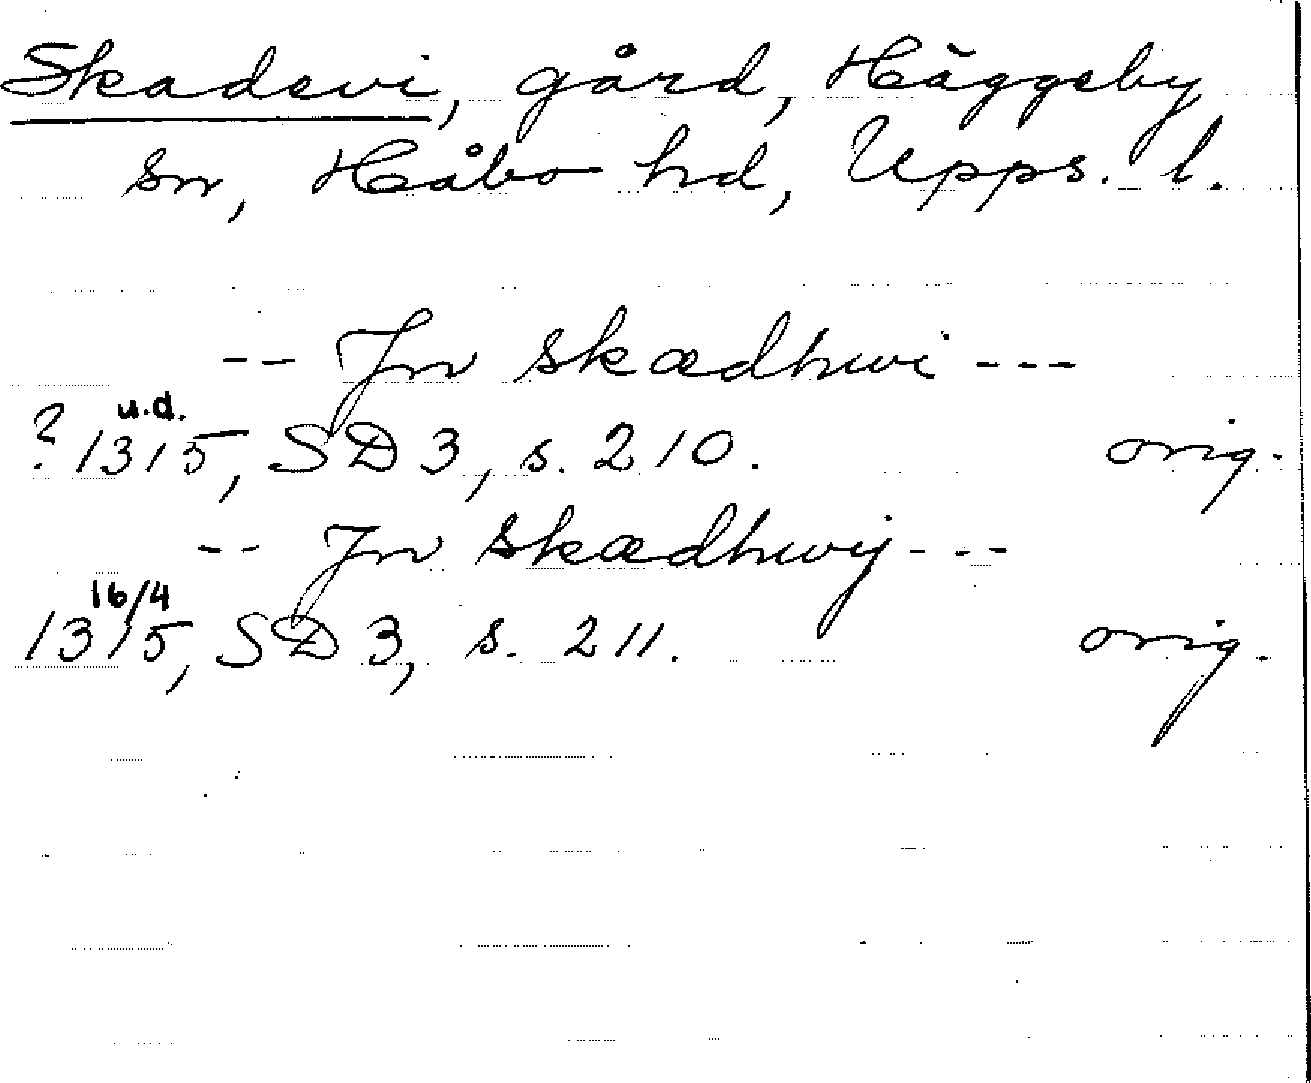 Skadevi, gård, Häggeby
sn, Håbo hd, Upps. l.
-- Jn skædhwi ---
u.d.
? 1315, SD 3, s. 210. orig.
-- Jn skædhwij ---
16/4
1315, SD 3, s. 211. orig.